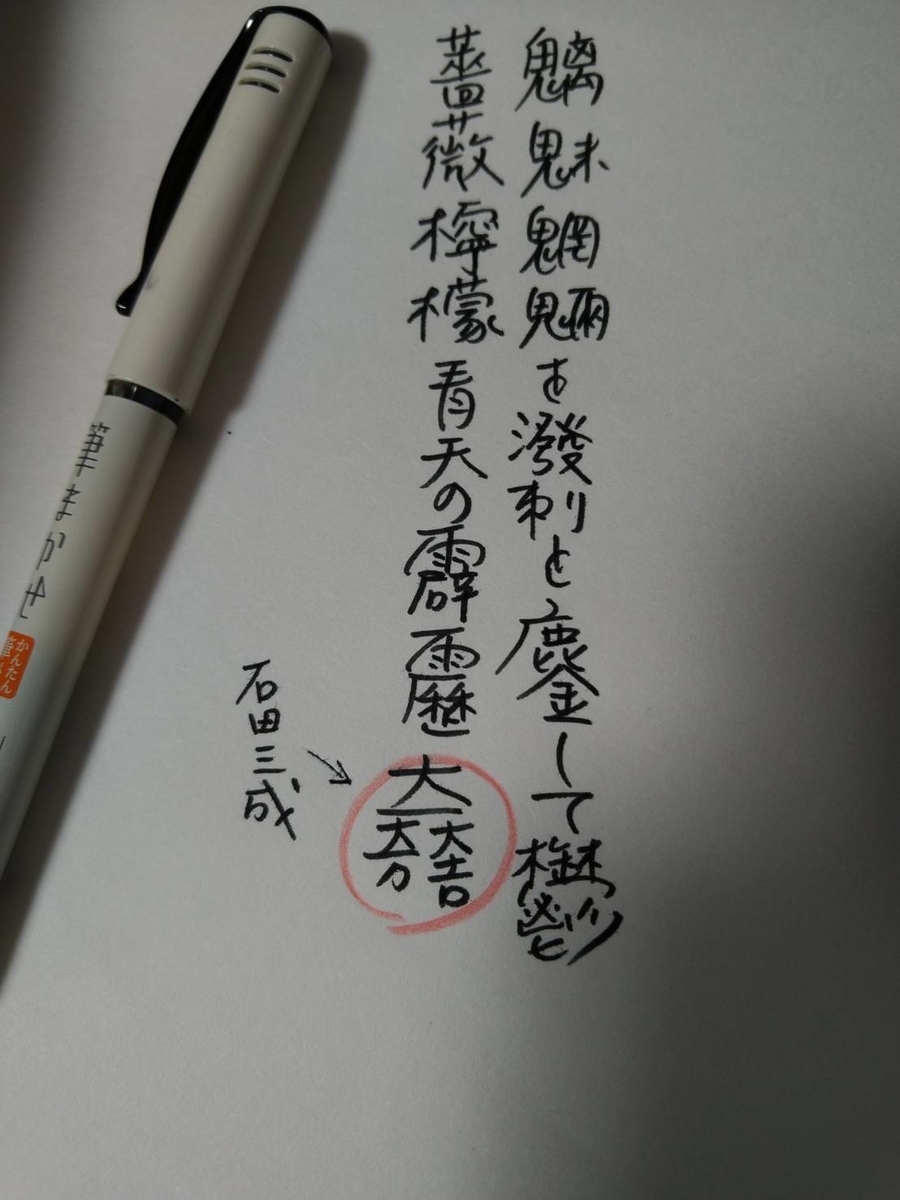 魑魅魍魎を潑刺と鏖して鬱
薔薇檸檬青天の霹靂
大一大万大吉
石田三成
筆まかせ
かんたん